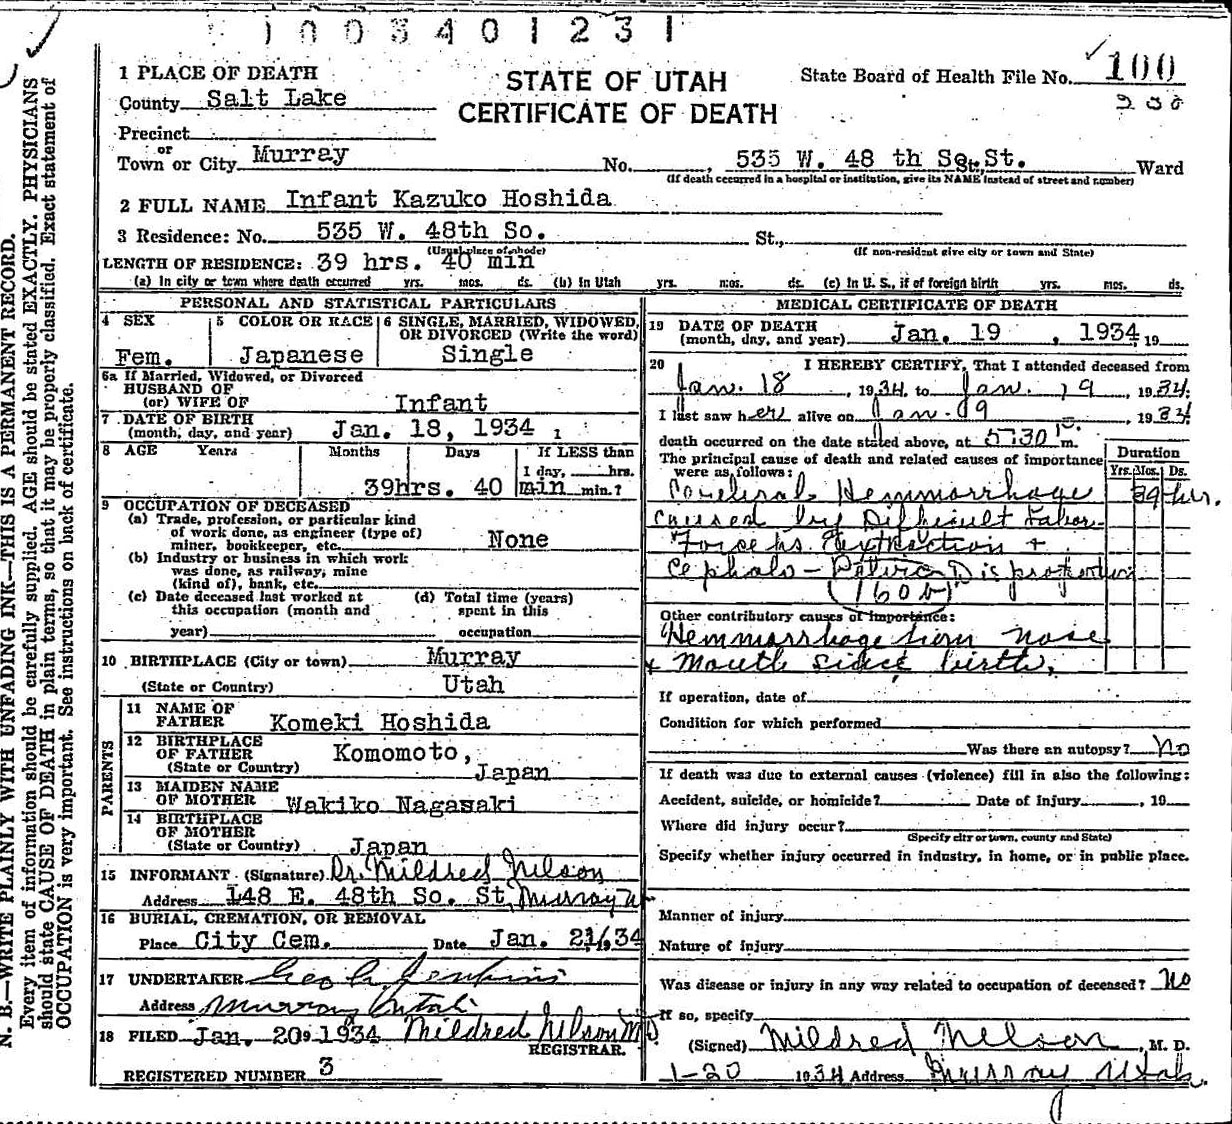 1003401231
1 PLACE OF DEATH
STATE OF UTAH
CERTIFICATE OF DEATH
State Board of Health File No. 100
200
County Salt Lake
Precinct
or
Town or City Murray No. , 535 W. 48 th So. St. Ward
(If death occurred in a hospital or institution, give its NAME instead of street and number)
2 FULL NAME Infant Kazuko Hoshida
3 Residence: No. 535 W. 48th So. St.,
(Usual place of abode) (If non-resident give city or town and State)
LENGTH OF RESIDENCE: 39 hrs. 40 min
(a) In city or town where death occurred yrs. mos. ds. (b) In Utah yrs. mos. ds. (c) In U. S., if of foreign birth yrs. mos. ds.
PERSONAL AND STATISTICAL PARTICULARS
4 SEX
Fem.
5 COLOR OR RACE
Japanese
6 SINGLE, MARRIED, WIDOWED,
OR DIVORCED (Write the word)
Single
6a If Married, Widowed, or Divorced
HUSBAND OF
(or) WIFE OF Infant
7 DATE OF BIRTH
(month, day, and year) Jan. 18, 1934 1
8 AGE Years Months Days If LESS than
1 day, hrs.
39hrs. 40 min min.?
9 OCCUPATION OF DECEASED
(a) Trade, profession, or particular kind
of work done, as engineer (type of)
miner, bookkeeper, etc. None
(b) Industry or business in which work
was done, as railway, mine
(kind of), bank, etc.
(c) Date deceased last worked at
this occupation (month and
year)
(d) Total time (years)
spent in this
occupation
10 BIRTHPLACE (City or town) Murray
(State or Country) Utah
PARENTS
11 NAME OF
FATHER Komeki Hoshida
12 BIRTHPLACE
OF FATHER Komomoto,
(State or Country) Japan
13 MAIDEN NAME
OF MOTHER Wakiko Nagasaki
14 BIRTHPLACE
OF MOTHER
(State or Country) Japan
15 INFORMANT (Signature) Dr. Mildred Nelson
Address 148 E. 48th So. St, Murray U
16 BURIAL, CREMATION, OR REMOVAL
Place City Cem. Date Jan. 21,34
17 UNDERTAKER Geo A. Jenkins
Address Murray Utah
18 FILED Jan. 20, 1934 Mildred Nelson M D.
REGISTRAR.
REGISTERED NUMBER 3
MEDICAL CERTIFICATE OF DEATH
19 DATE OF DEATH
(month, day, and year) Jan. 19 , 1934 19
20 I HEREBY CERTIFY, That I attended deceased from
Jan. 18 , 1934, to Jan. 19 , 1934;
I last saw her alive on Jan. 19 , 1934
death occurred on the date stated above, at 5:30 m.
The principal cause of death and related causes of importance
were as follows:
Duration
Yrs. Mos. Ds.
Cerebral Hemmorrhage 39 hrs.
caused by Difficult Labor
Forceps Extraction +
Cephalo-Pelvic Disproportion
(160b)
Other contributory causes of importance:
Hemmorrhage from nose
+ mouth since birth.
If operation, date of
Condition for which performed
Was there an autopsy? No
If death was due to external causes (violence) fill in also the following:
Accident, suicide, or homicide? Date of Injury , 19
Where did injury occur?
(Specify city or town, county and State)
Specify whether injury occurred in industry, in home, or in public place.
Manner of injury
Nature of injury
Was disease or injury in any way related to occupation of deceased? No
If so, specify
(Signed) Mildred Nelson , M. D.
1-20 1934 Address Murray Utah.
N. B.—WRITE PLAINLY WITH UNFADING INK—THIS IS A PERMANENT RECORD.
Every item of information should be carefully supplied. AGE should be stated EXACTLY. PHYSICIANS
should state CAUSE OF DEATH in plain terms, so that it may be properly classified. Exact statement of
OCCUPATION is very important. See instructions on back of certificate.